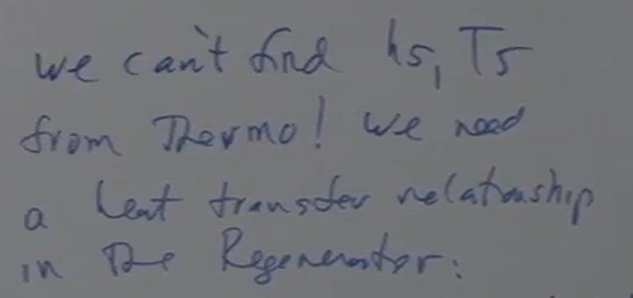 we can't find h5, T5
from Thermo! we need
a heat transfer relationship
in the Regenerator: